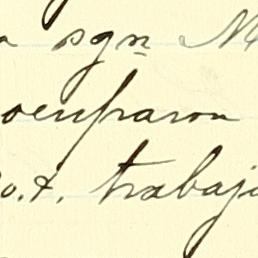 sgn M
ocuparon
o.t. trabajo